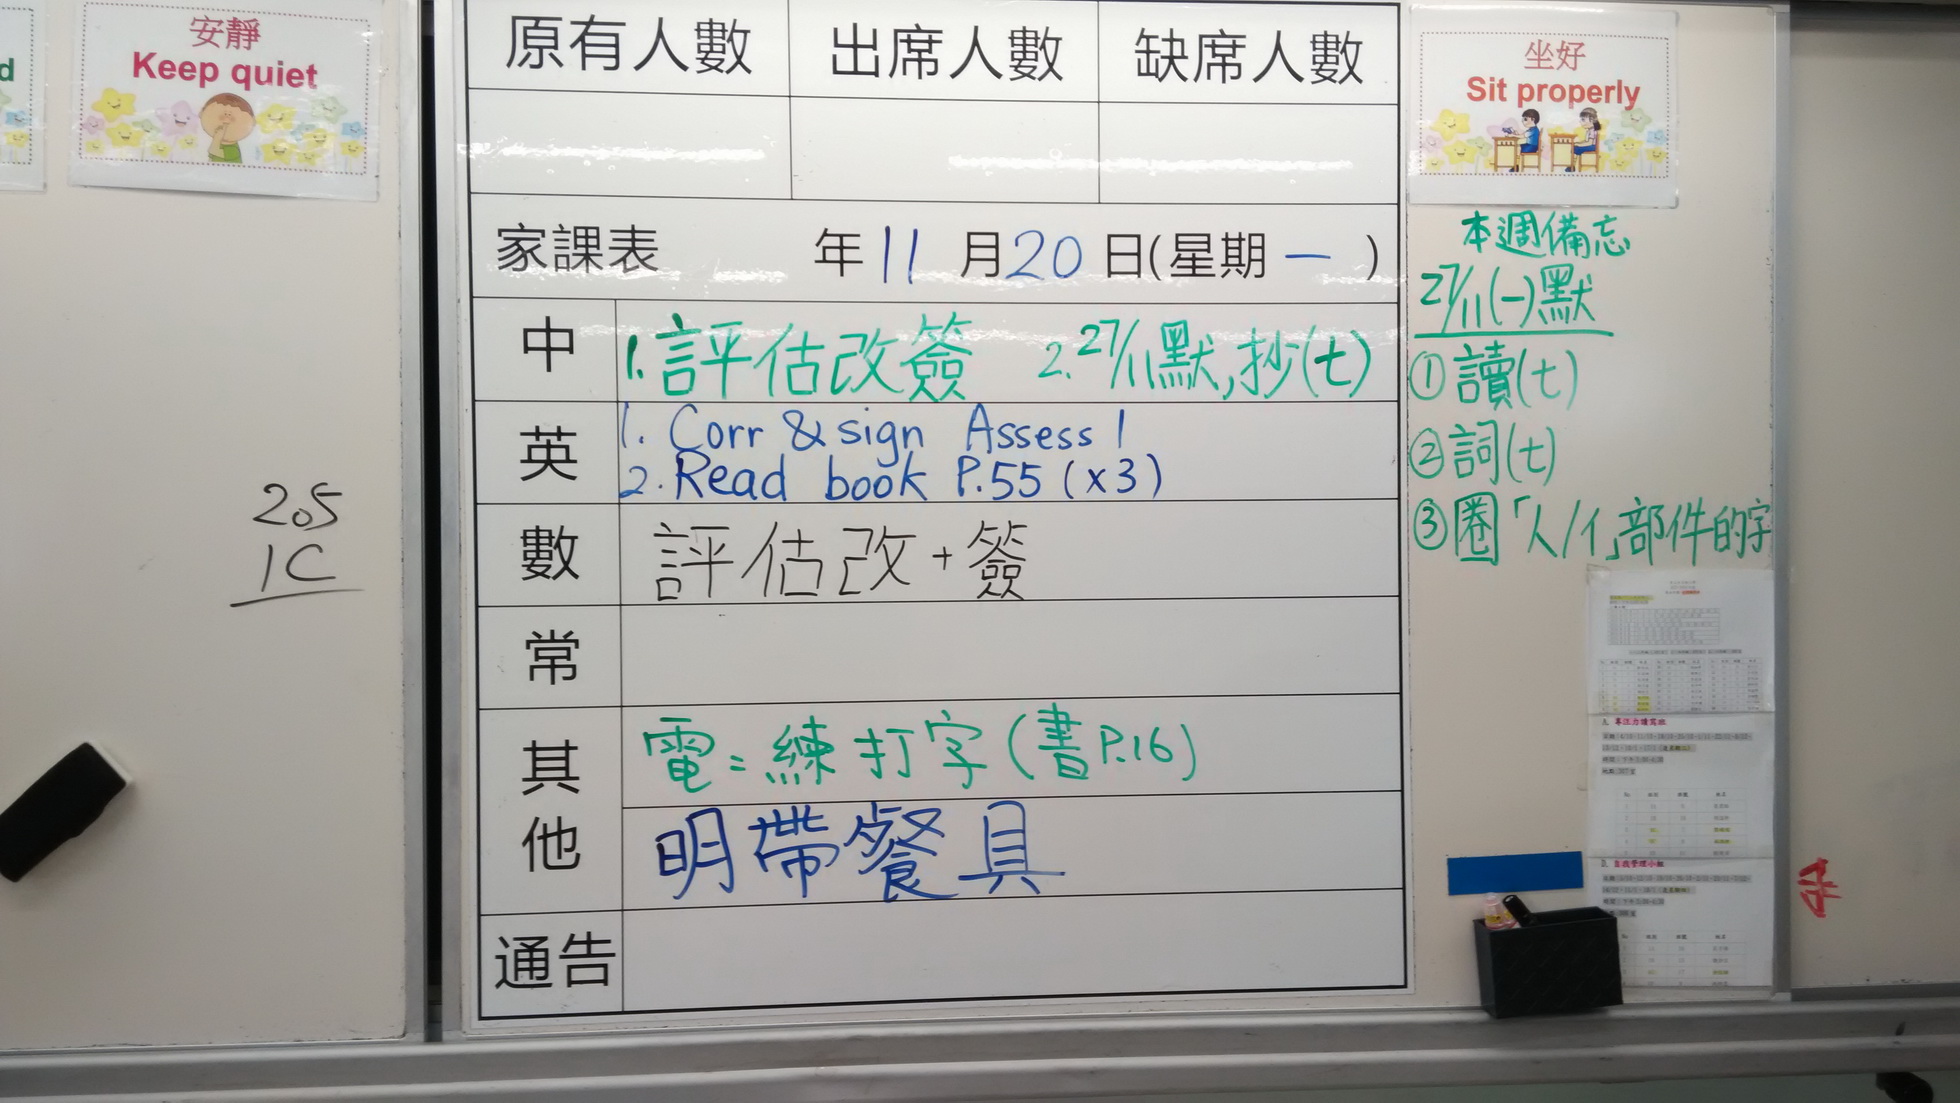 d
安靜
Keep quiet
205
1C
原有人數 出席人數 缺席人數
家課表 年11月20日(星期一)
中 1.評估改簽 2.27/11默,抄(七)
英 1. Corr & sign Assess 1
2. Read book P.55 (x3)
數 評估改+簽
常
其他 電:練打字(書P.16)
明帶餐具
通告
坐好
Sit properly
本週備忘
27/11(一)默
①讀(七)
②詞(七)
③圈「人/亻」部件的字